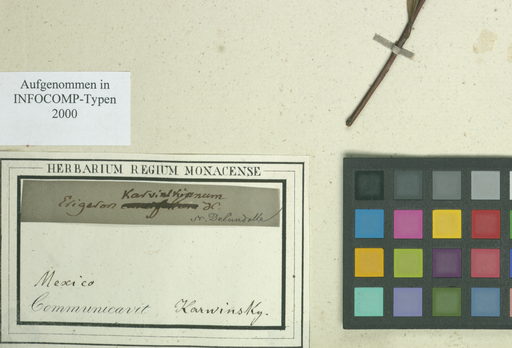 Aufgenommen in
INFOCOMP-Typen
2000
HERBARIUM REGIUM MONACENSE
Karvinskianum
Erigeron DC
Mexico
Communicavit Karwinsky.